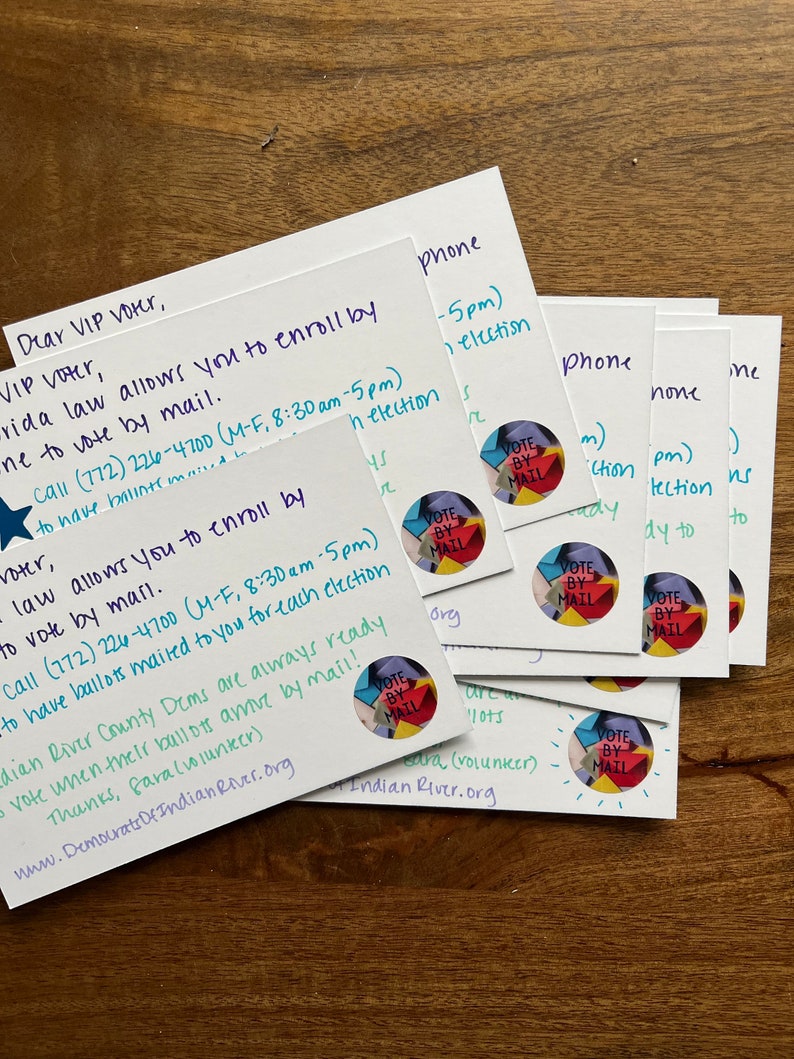 Dear VIP Voter,
phone
-5pm)
election
VIP Voter,
rida law allows you to enroll by
ne to vote by mail.
Call (772) 226-4700 (M-F, 8:30am-5pm)
to have ballots mailed election
VOTE
BY
MAIL
VOTE
BY
MAIL
oter,
law allows you to enroll by
to vote by mail.
Call (772) 226-4700 (M-F, 8:30am-5pm)
to have ballots mailed to you for each election
ndian River County Dems are always ready
o vote when their ballots arrive by mail!
Thanks, Sara (volunteer)
www.DemocratsOfIndianRiver.org
VOTE
BY
MAIL
phone
m)
ction
ady
VOTE
BY
MAIL
.org
hone
pm)
lection
dy to
VOTE
BY
MAIL
ne
)
ns
to
are
llots
Sara (volunteer)
of Indian River.org
VOTE
BY
MAIL